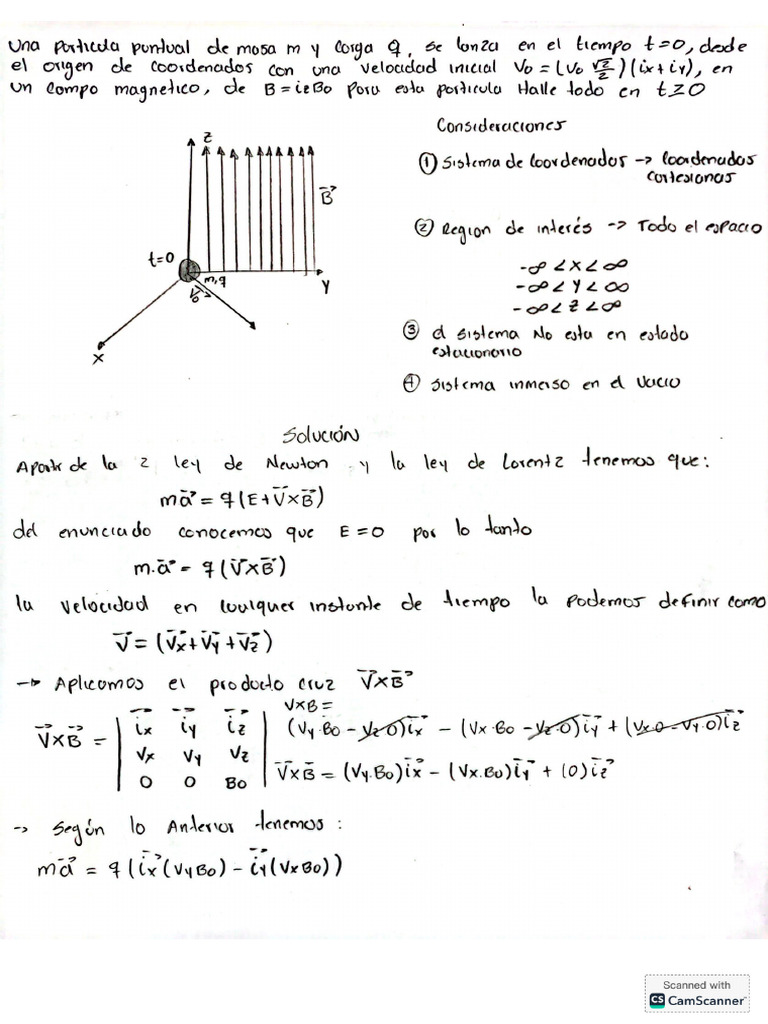 Una particula puntual de masa m y carga q, se lanza en el tiempo t=0, desde
el origen de coordenadas con una velocidad inicial V0 = (V0 √2/2)(ix+iy), en
un campo magnetico, de B=izB0 para esta particula Halle todo en t≥0
Consideraciones
① Sistema de coordenadas → Coordenadas
cartesianas
② Region de interés → Todo el espacio
-∞ < x < ∞
-∞ < y < ∞
-∞ < z < ∞
③ el sistema No esta en estado
estacionario
④ Sistema inmerso en el vacio
z
B⃗
t=0
m,q
V⃗0
y
x
Solución
Apartir de la 2 ley de Newton y la ley de Lorentz tenemos que:
ma⃗ = q(E+V⃗×B⃗)
del enunciado conocemos que E=0 por lo tanto
m.a⃗ = q(V⃗×B⃗)
la velocidad en cualquer instante de tiempo la podemos definir como
V⃗ = (V⃗x+V⃗y+V⃗z)
→ Aplicamos el producto cruz V⃗×B⃗
V⃗×B⃗ = | i⃗x i⃗y i⃗z |
Vx Vy Vz
0 0 B0
V×B =
(Vy·B0 - Vz·0)i⃗x - (Vx·B0 - Vz·0)i⃗y + (Vx·0 - Vy·0)i⃗z
V⃗×B⃗ = (Vy.B0)i⃗x - (Vx.B0)i⃗y + (0)i⃗z
→ Según lo Anterior tenemos:
ma⃗ = q(i⃗x(VyB0) - i⃗y(VxB0))
Scanned with
CS CamScanner